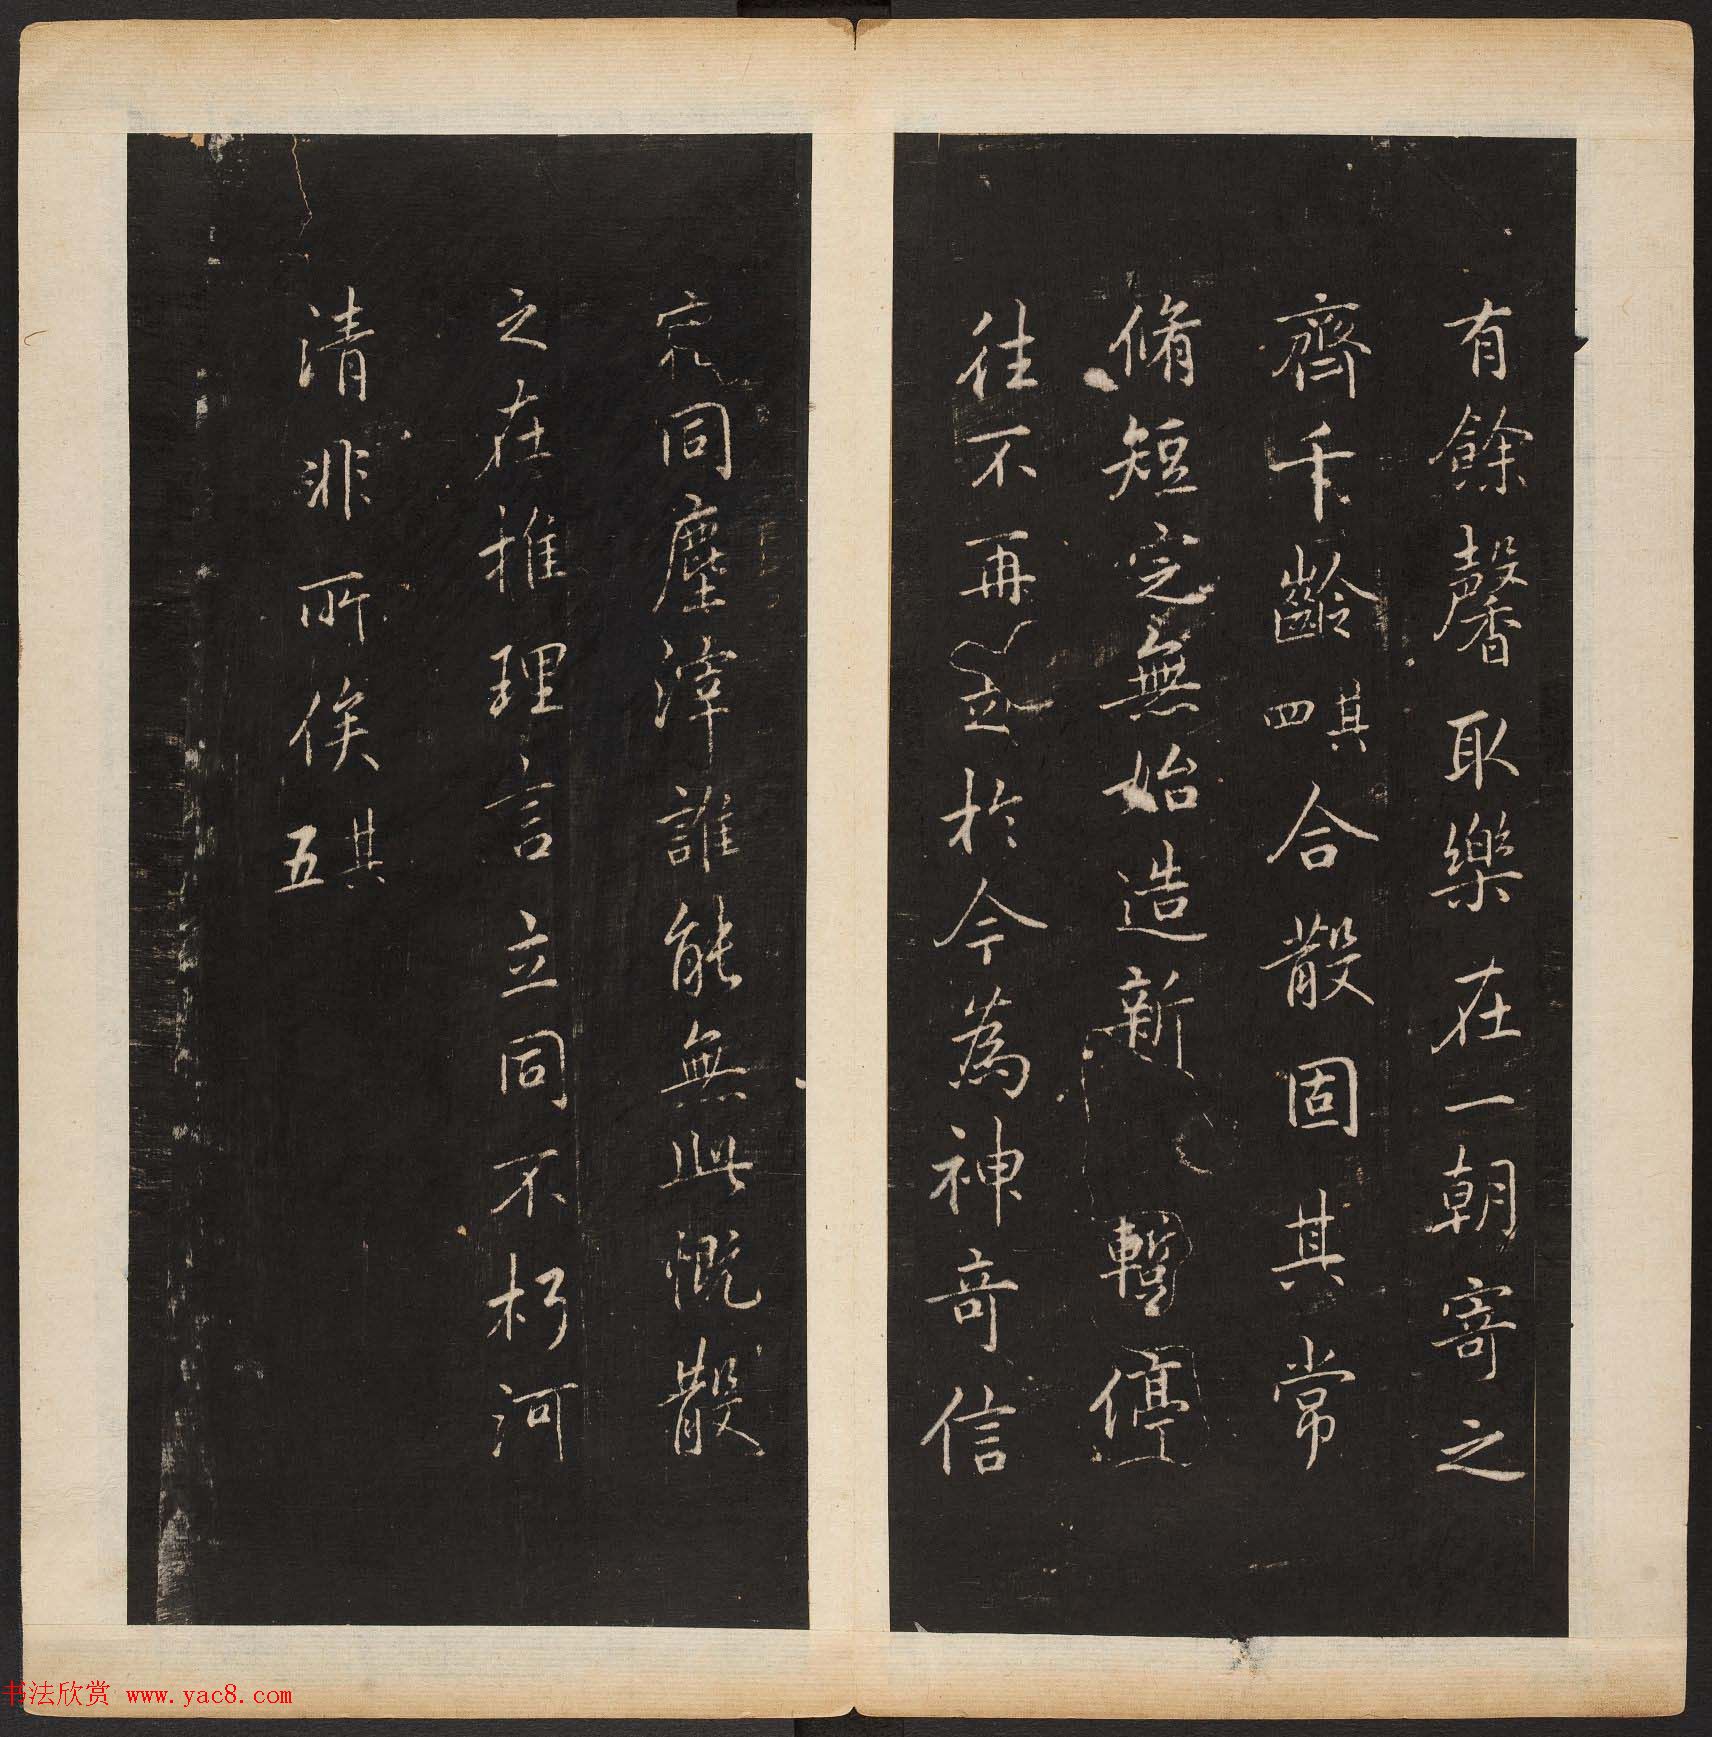 有餘馨取樂在一朝寄之
齊千齡 其四 合散固其常
脩短定無始造新 暫停
往不再 於今為神奇信
宿同塵滓誰能無此慨散
之在推理言立同不朽河
清非所俟 其五
书法欣赏 www.yac8.com